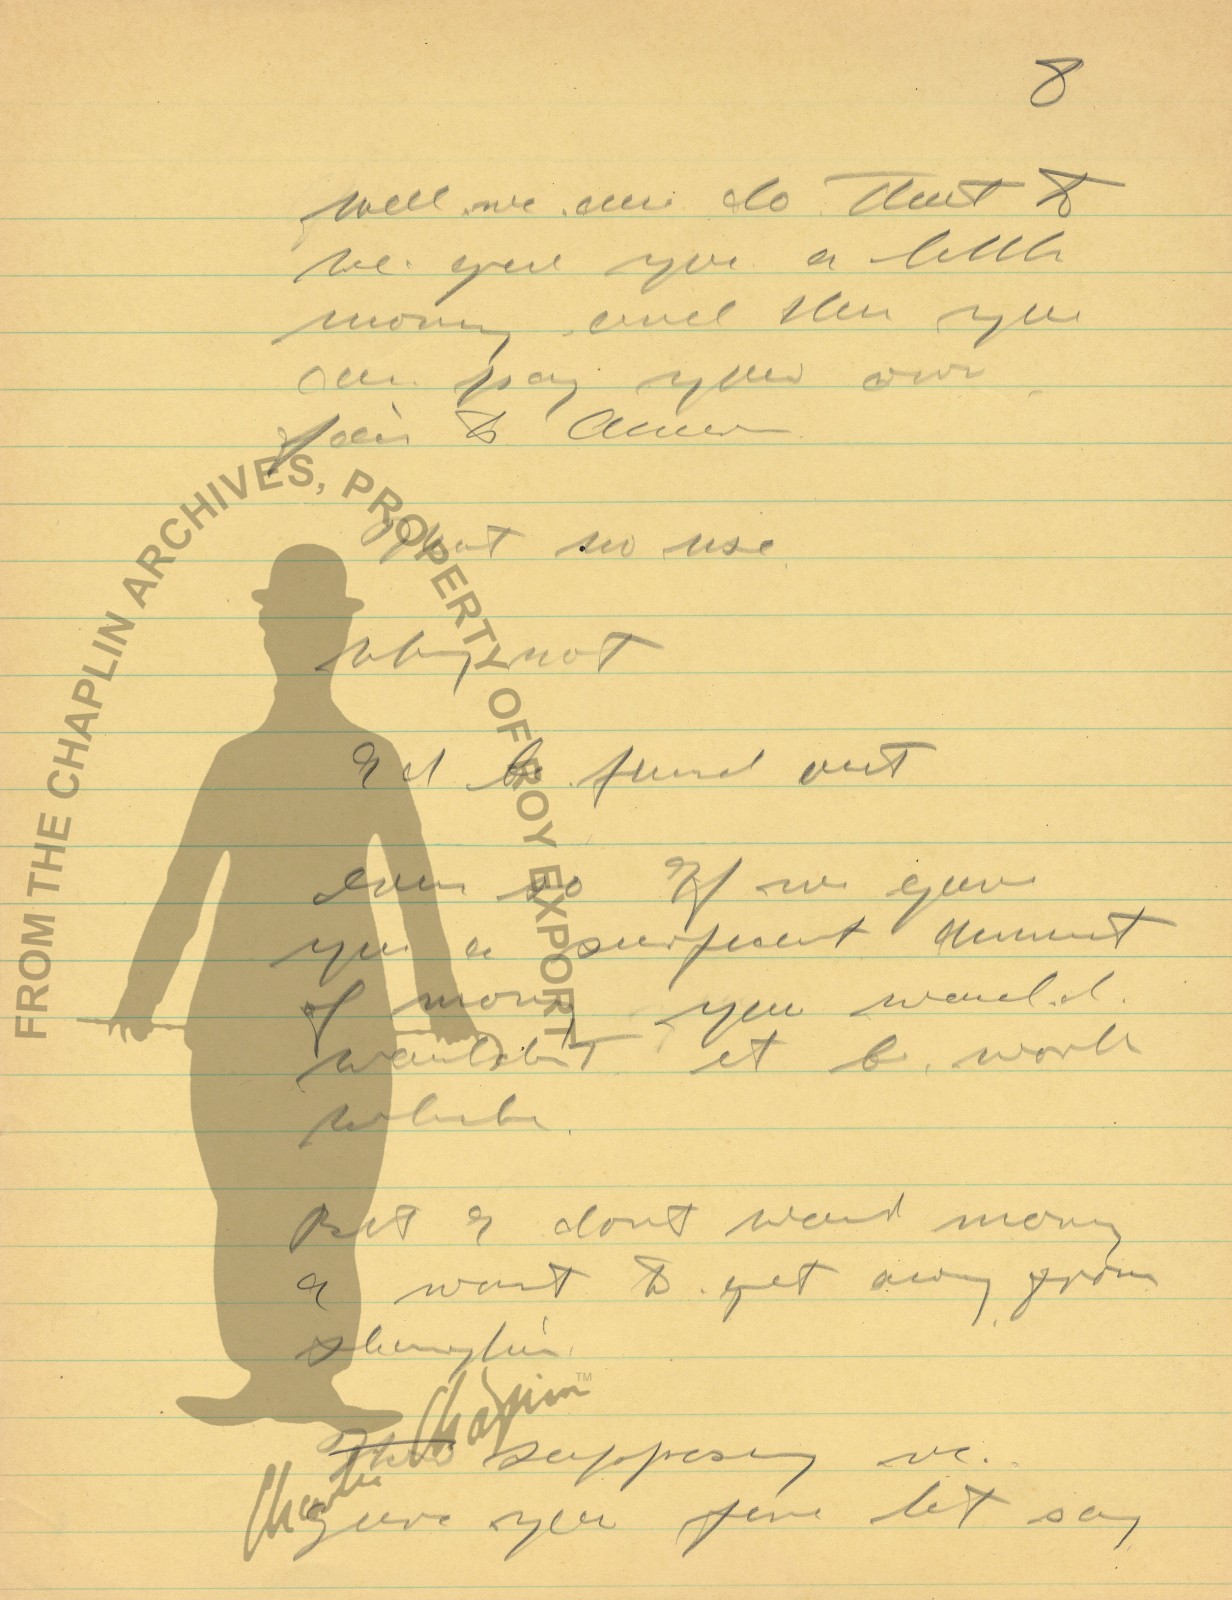 8
well we can do that to
we give you a little
money and then you
can pay your own
fair to
that no use
why not
I d be found out
Even so If we gave
you a amount
of money you would.
wouldn't it be worth
while.
But I dont want money
I want to get away from
Shanghai
supposing we
gave you five let say
FROM THE CHAPLIN ARCHIVES, PROPERTY OF ROY EXPORT
Charlie Chaplin™